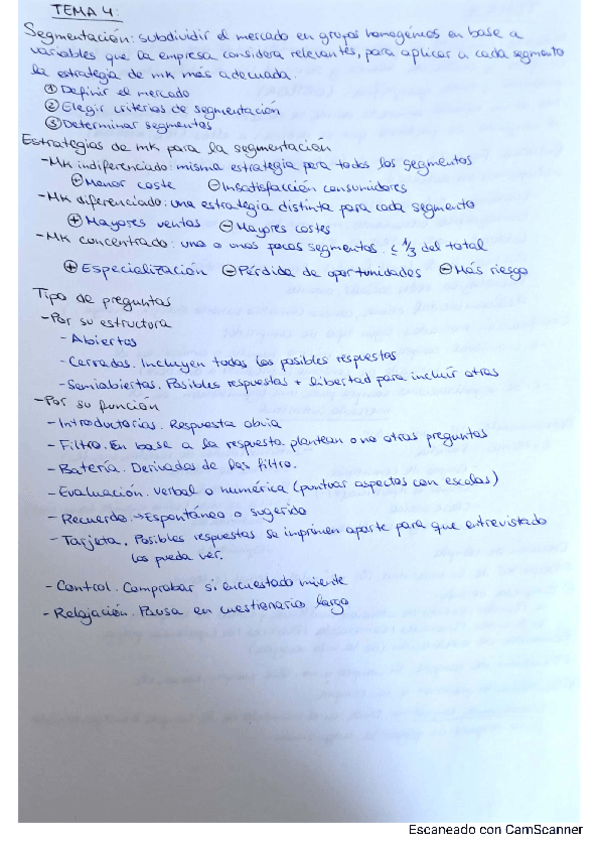 TEMA 4:
Segmentación: subdividir el mercado en grupos homogéneos en base a
variables que la empresa considera relevantes, para aplicar a cada segmento
la estrategia de mk más adecuada.
① Definir el mercado
② Elegir criterios de segmentación
③ Determinar segmentos
Estrategias de mk para la segmentación
- Mk indiferenciado: misma estrategia para todos los segmentos
⊕ Menor coste ⊖ Insatisfacción consumidores
- Mk diferenciado: una estrategia distinta para cada segmento
⊕ Mayores ventas ⊖ Mayores costes
- Mk concentrado: uno o unos pocos segmentos. 1/3 del total
⊕ Especialización ⊖ Pérdida de oportunidades ⊖ Más riesgo
Tipo de preguntas
- Por su estructura
- Abiertas
- Cerradas. Incluyen todas las posibles respuestas
- Semiabiertas. Posibles respuestas + libertad para incluir otras
- Por su función
- Introductorias. Respuesta obvia
- Filtro. En base a la respuesta plantean o no otras preguntas
- Batería. Derivadas de las filtro.
- Evaluación. Verbal o numérica (puntuar aspectos con escalas)
- Recuerdo. → Espontáneo o sugerido
- Tarjeta. Posibles respuestas se imprimen aparte para que entrevistado
las pueda ver.
- Control. Comprobar si encuestado miente
- Relajación. Pausa en cuestionario largo
Escaneado con CamScanner